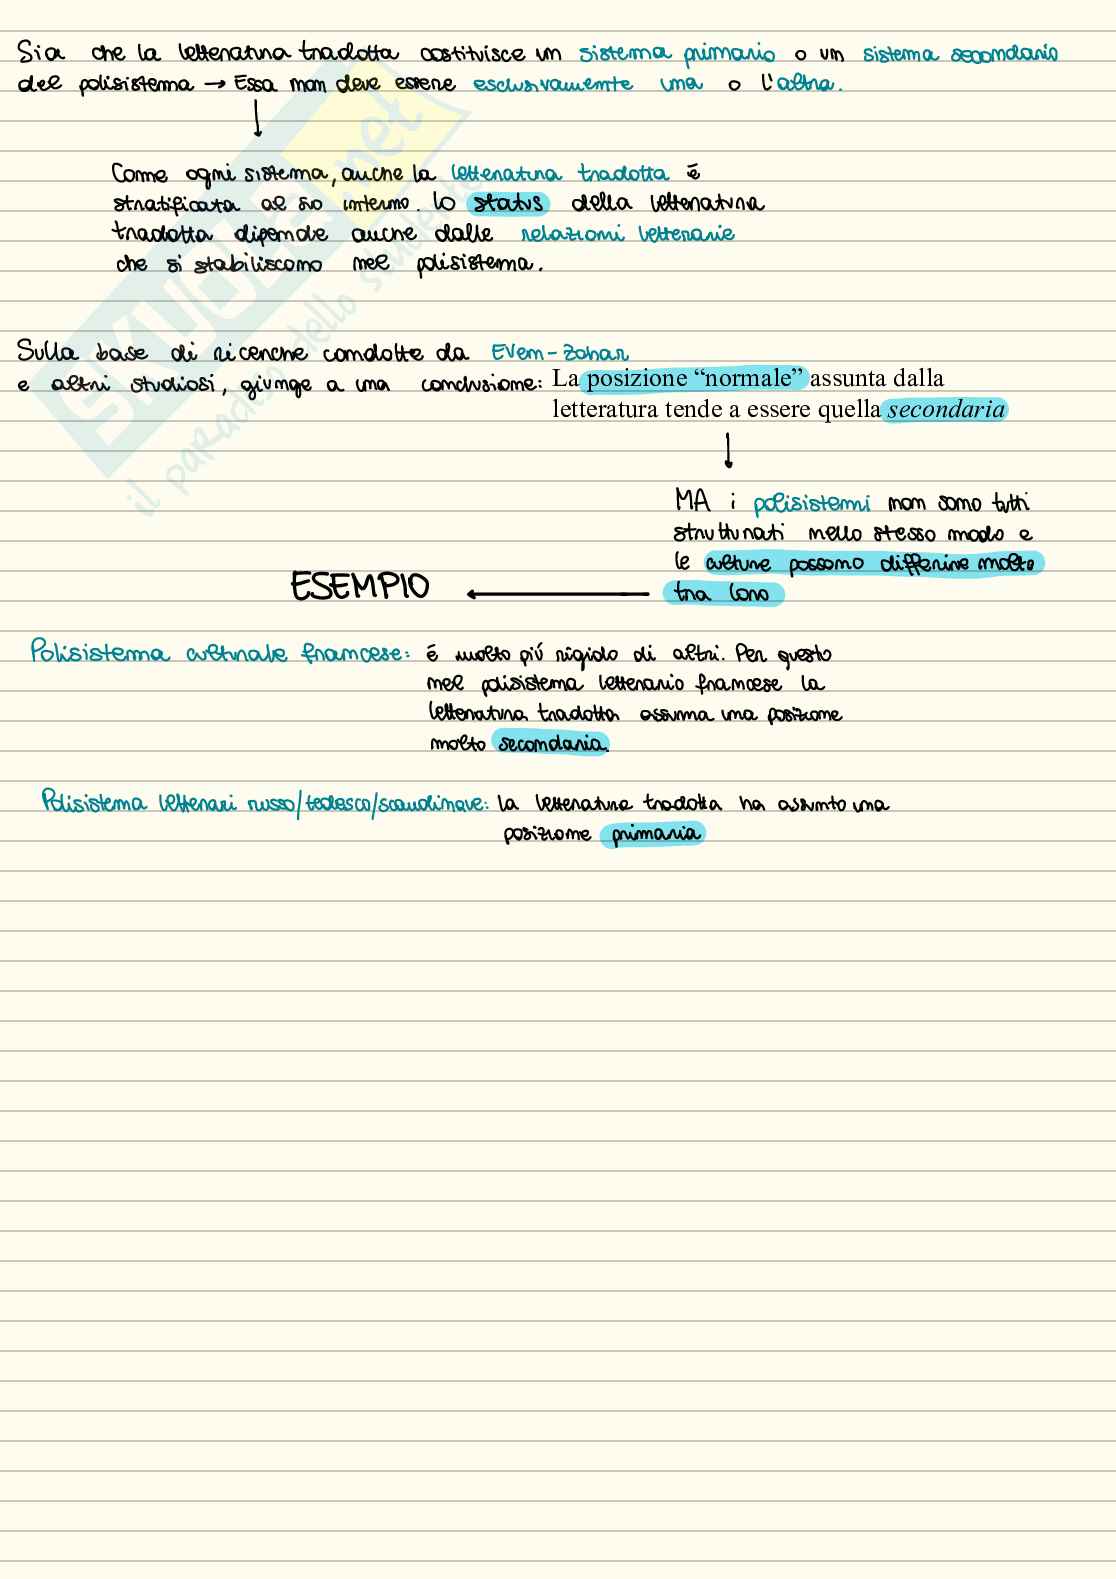 Sia che la letteratura tradotta costituisce un sistema primario o un sistema secondario
del polisistema → Essa non deve essere esclusivamente una o l'altra.
Come ogni sistema, anche la letteratura tradotta é
stratificata al suo interno. Lo status della letteratura
tradotta dipende anche dalle relazioni letterarie
che si stabiliscono nel polisistema.
Sulla base di ricerche condotte da Even-Zohar
e altri studiosi, giunge a una conclusione: La posizione “normale” assunta dalla
letteratura tende a essere quella secondaria
MA i polisistemi non sono tutti
strutturati nello stesso modo e
le culture possono differire molto
tra loro
ESEMPIO
Polisistema culturale francese: é molto piú rigido di altri. Per questo
nel polisistema letterario francese la
letteratura tradotta assuma una posizione
molto secondaria.
Polisistema letterari russo/tedesco/scandinave: la letteratura tradotta ha assunto una
posizione primaria
SKUOLA.net
il paradiso dello studente